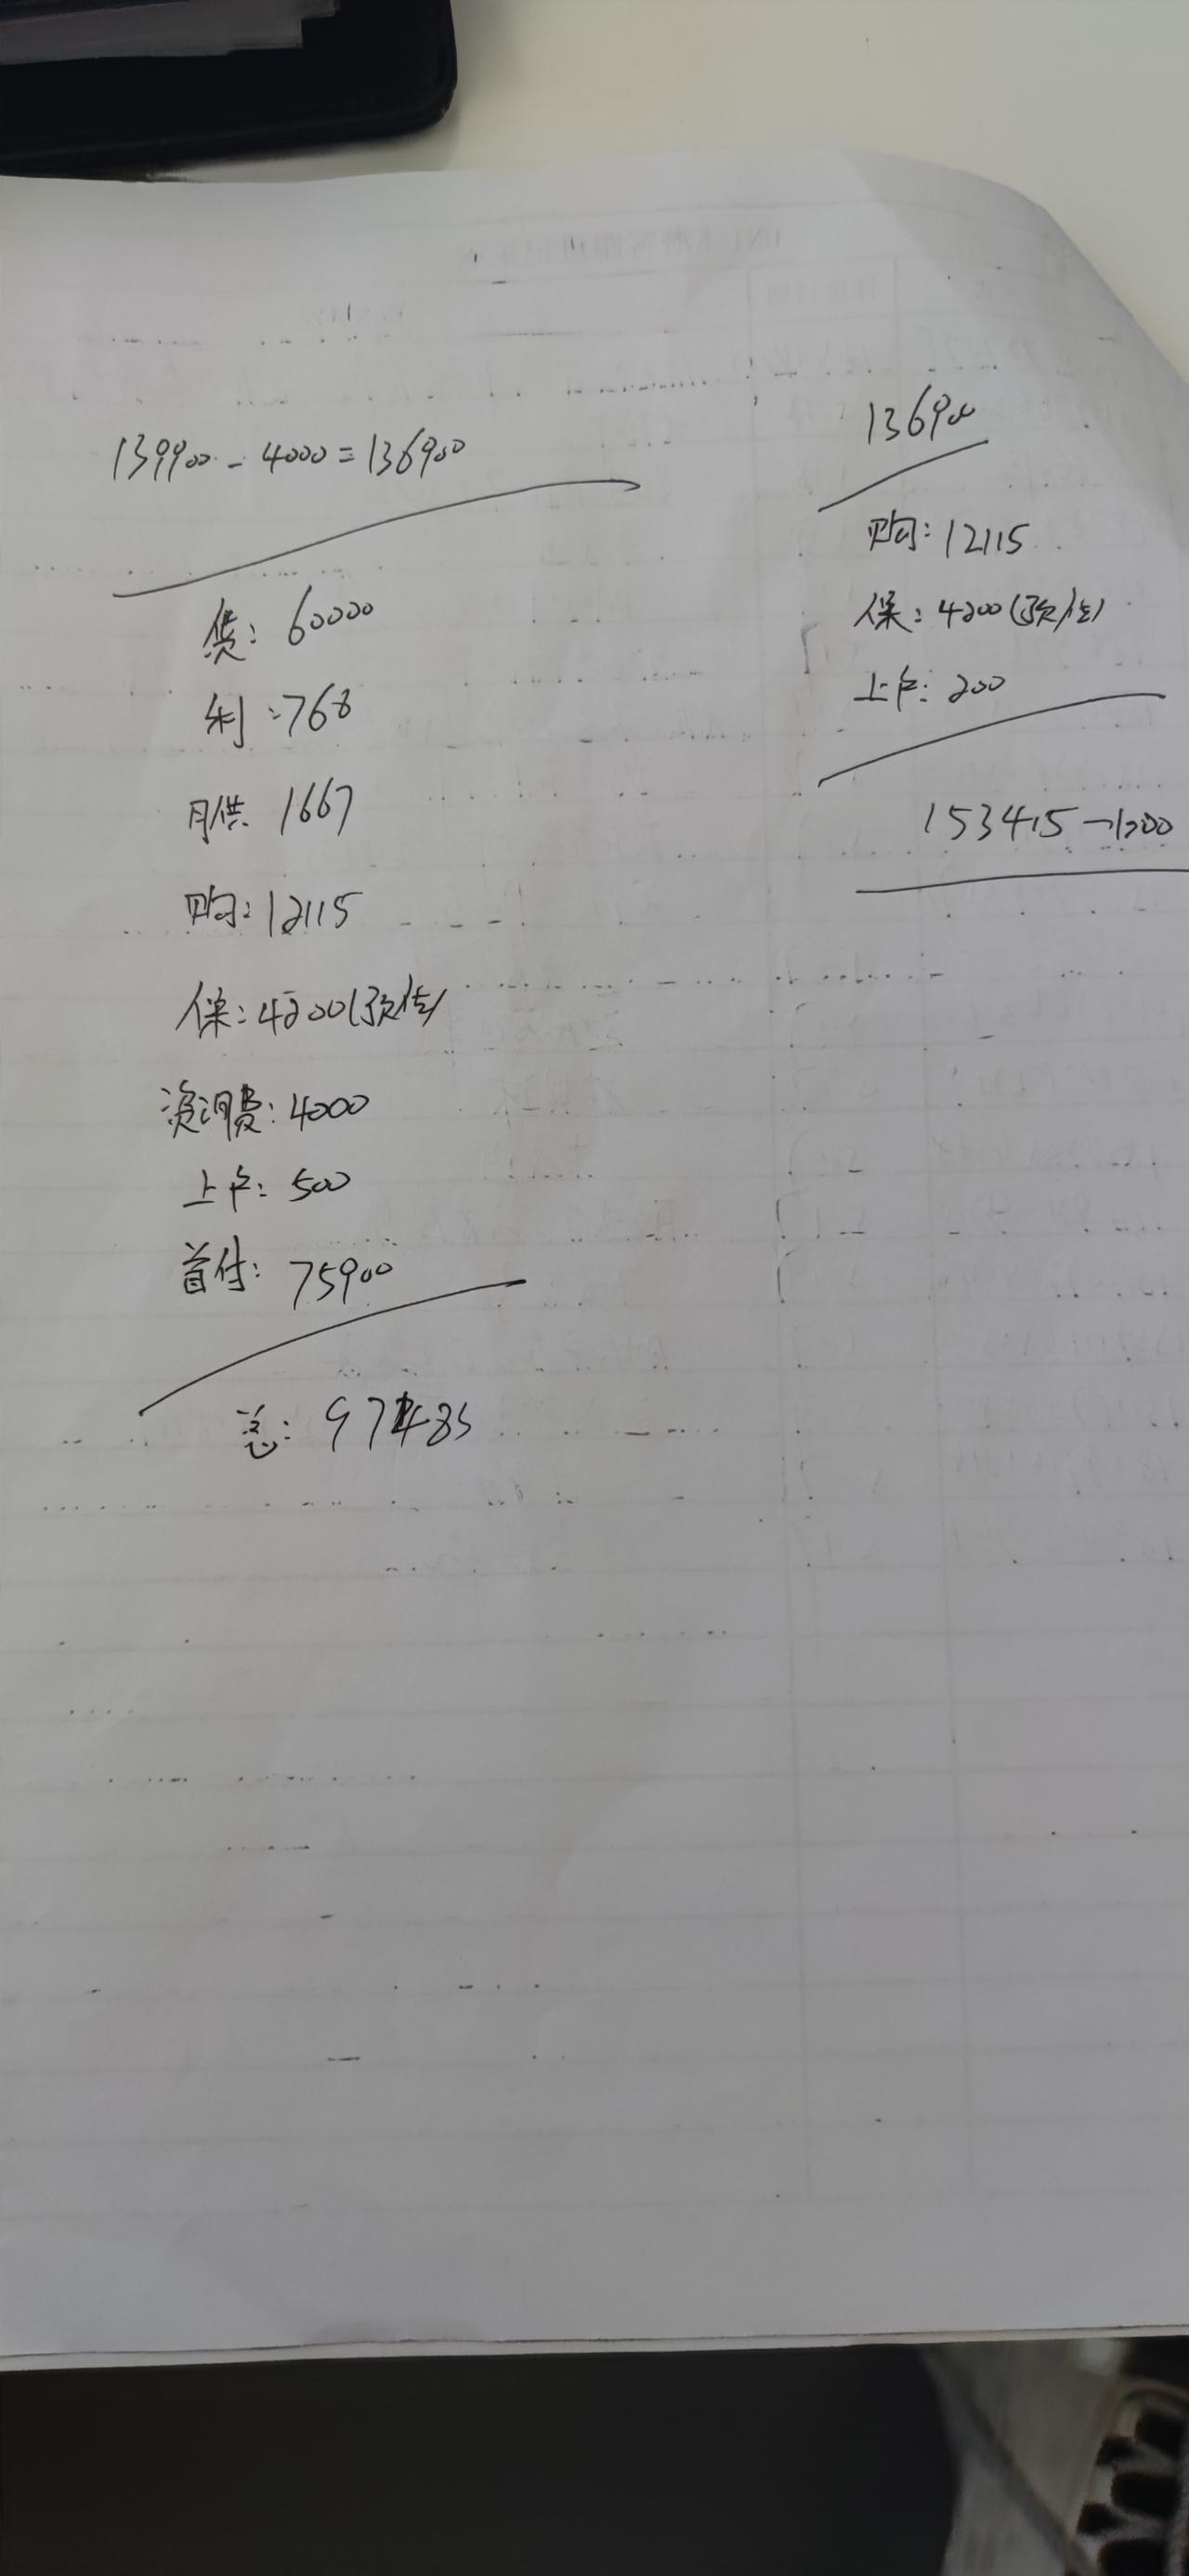 139900-4000=136900
贷：60000
利：768
月供 1667
购：12115
保：4200(预估)
资询费：4000
上户：500
首付：75900
总：97483
136900
购：12115
保：4200(预估)
上户：200
153415-1200